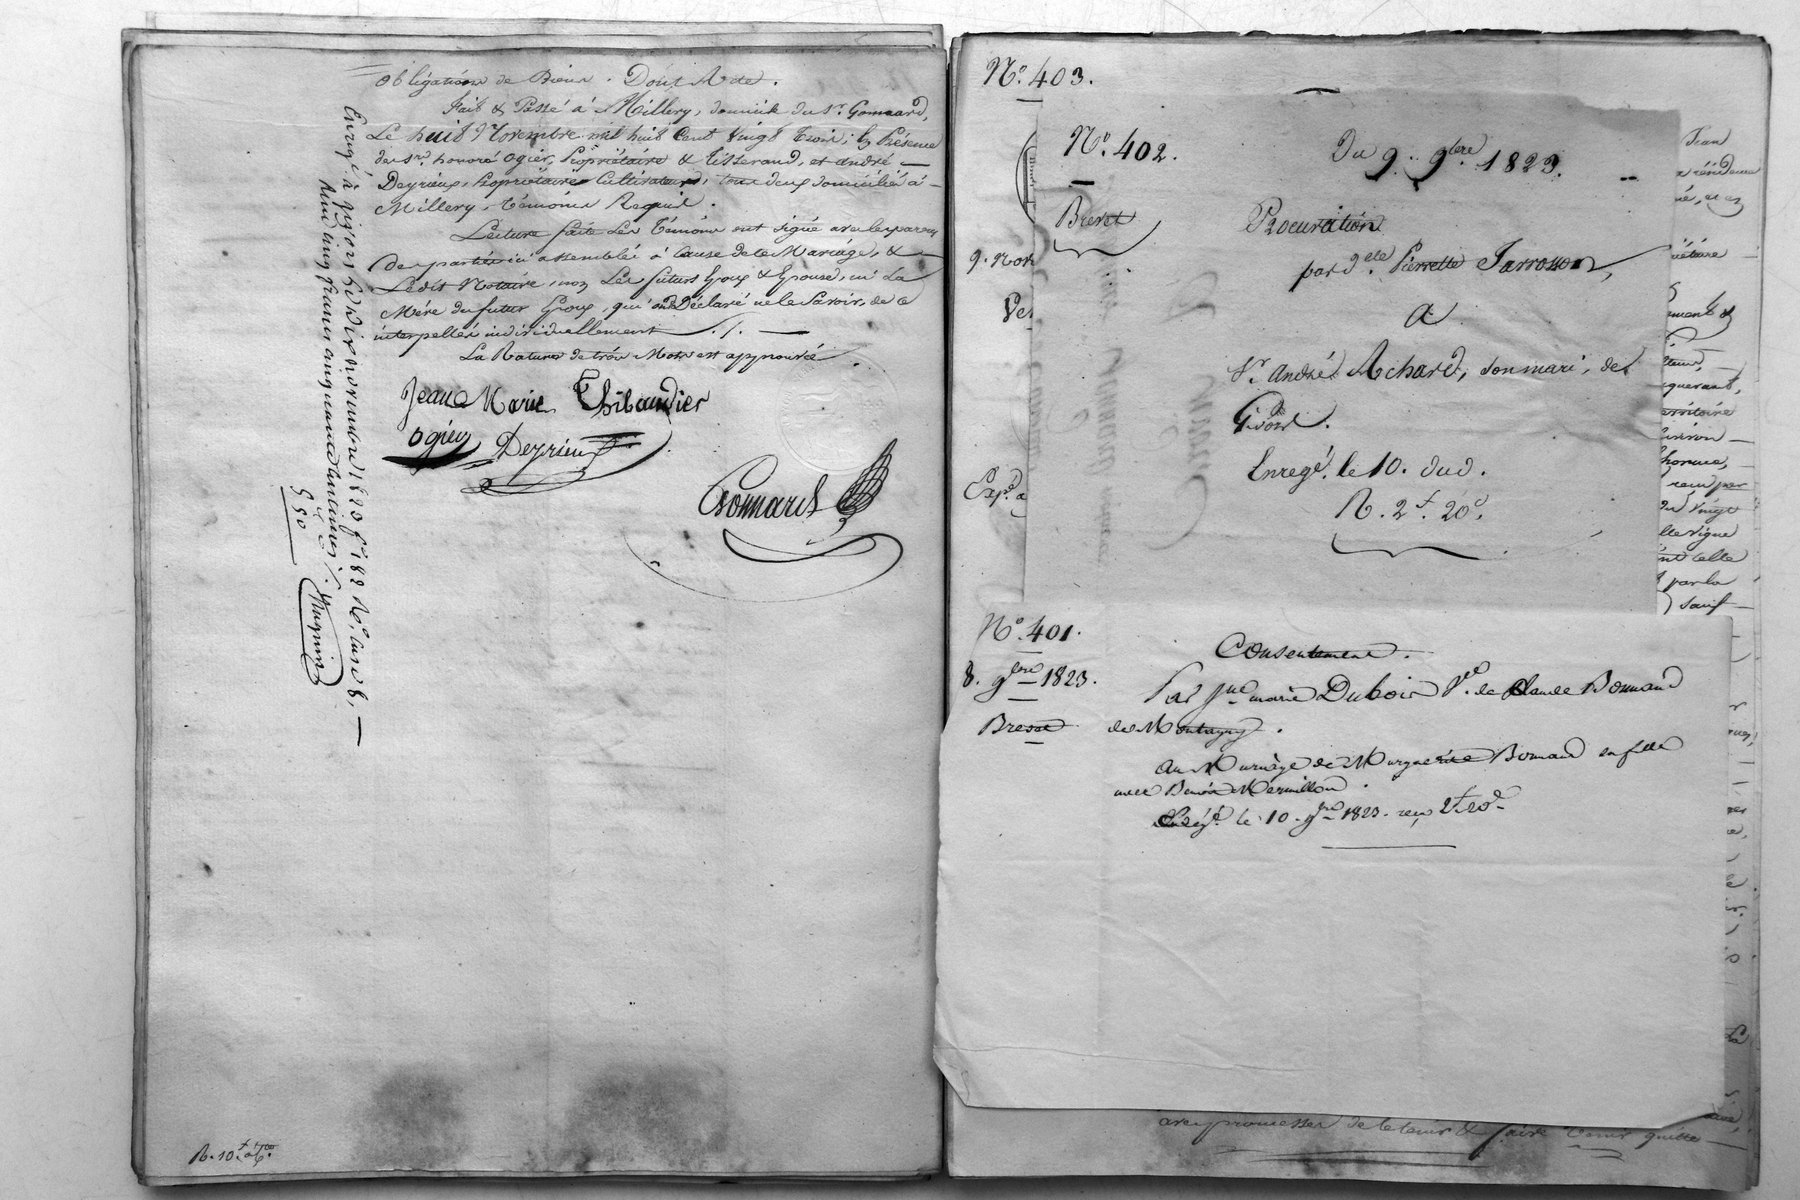 obligation de Biens. Dont Acte.
Fait & Passé à Millery, domicile du Sr. Gonnard,
Le huit Novembre mil huit Cent Vingt Trois; En Présence
des Srs. honoré Ogier, Propriétaire & Tisserand, et andré —
Deyrieux, Propriétaire Cultivateur, tous deux domiciliés à —
Millery, Témoins Requis.
Lecture faite Les Témoins ont signé avec les parens
des parties ici assemblés à Cause de ce Mariage, & —
Ledit Notaire, non Les futurs Epoux & Epouse, ni La
Mère du futur Epoux, qui ont Déclaré ne le Savoir, de ce
interpellés individuellement ./. —
La Rature de trois Mots est approuvée.
Jean Marie Thibaudier
Ogier Deyrieux
Gonnard
Enregé. à Givors le dix novembre 1823 fo. 182 Ro. case 8, —
Reçu cinq francs cinquante centimes
5 50
R. 10
No. 403.
9. Nov
Ve
Expé. a
No. 402.
Brevet
Du 9. 9bre. 1823.
Procuration
par Delle Pierrette Jarrosson,
A
Sr. André Achard, son mari, de
Givors.
Enregé. le 10. dud.
R. 2f. 20c.
No. 401.
8. 9bre 1823.
Brevet
Consentement.
Par Jne marie Dubois Ve. de Claude Bonnand
de Montagny.
Au Mariage de Marguerite Bonnand sa fille
avec Benoit Mermillon.
Enregé. le 10. 9bre 1823. reçu 2f 20c
Jean
résidence
iétaire —
querant,
territoire
reçu par
du Vingt
lle vigne
celle
par la
) sauf —
avec promesse de le tenir & faire tenir quitte —